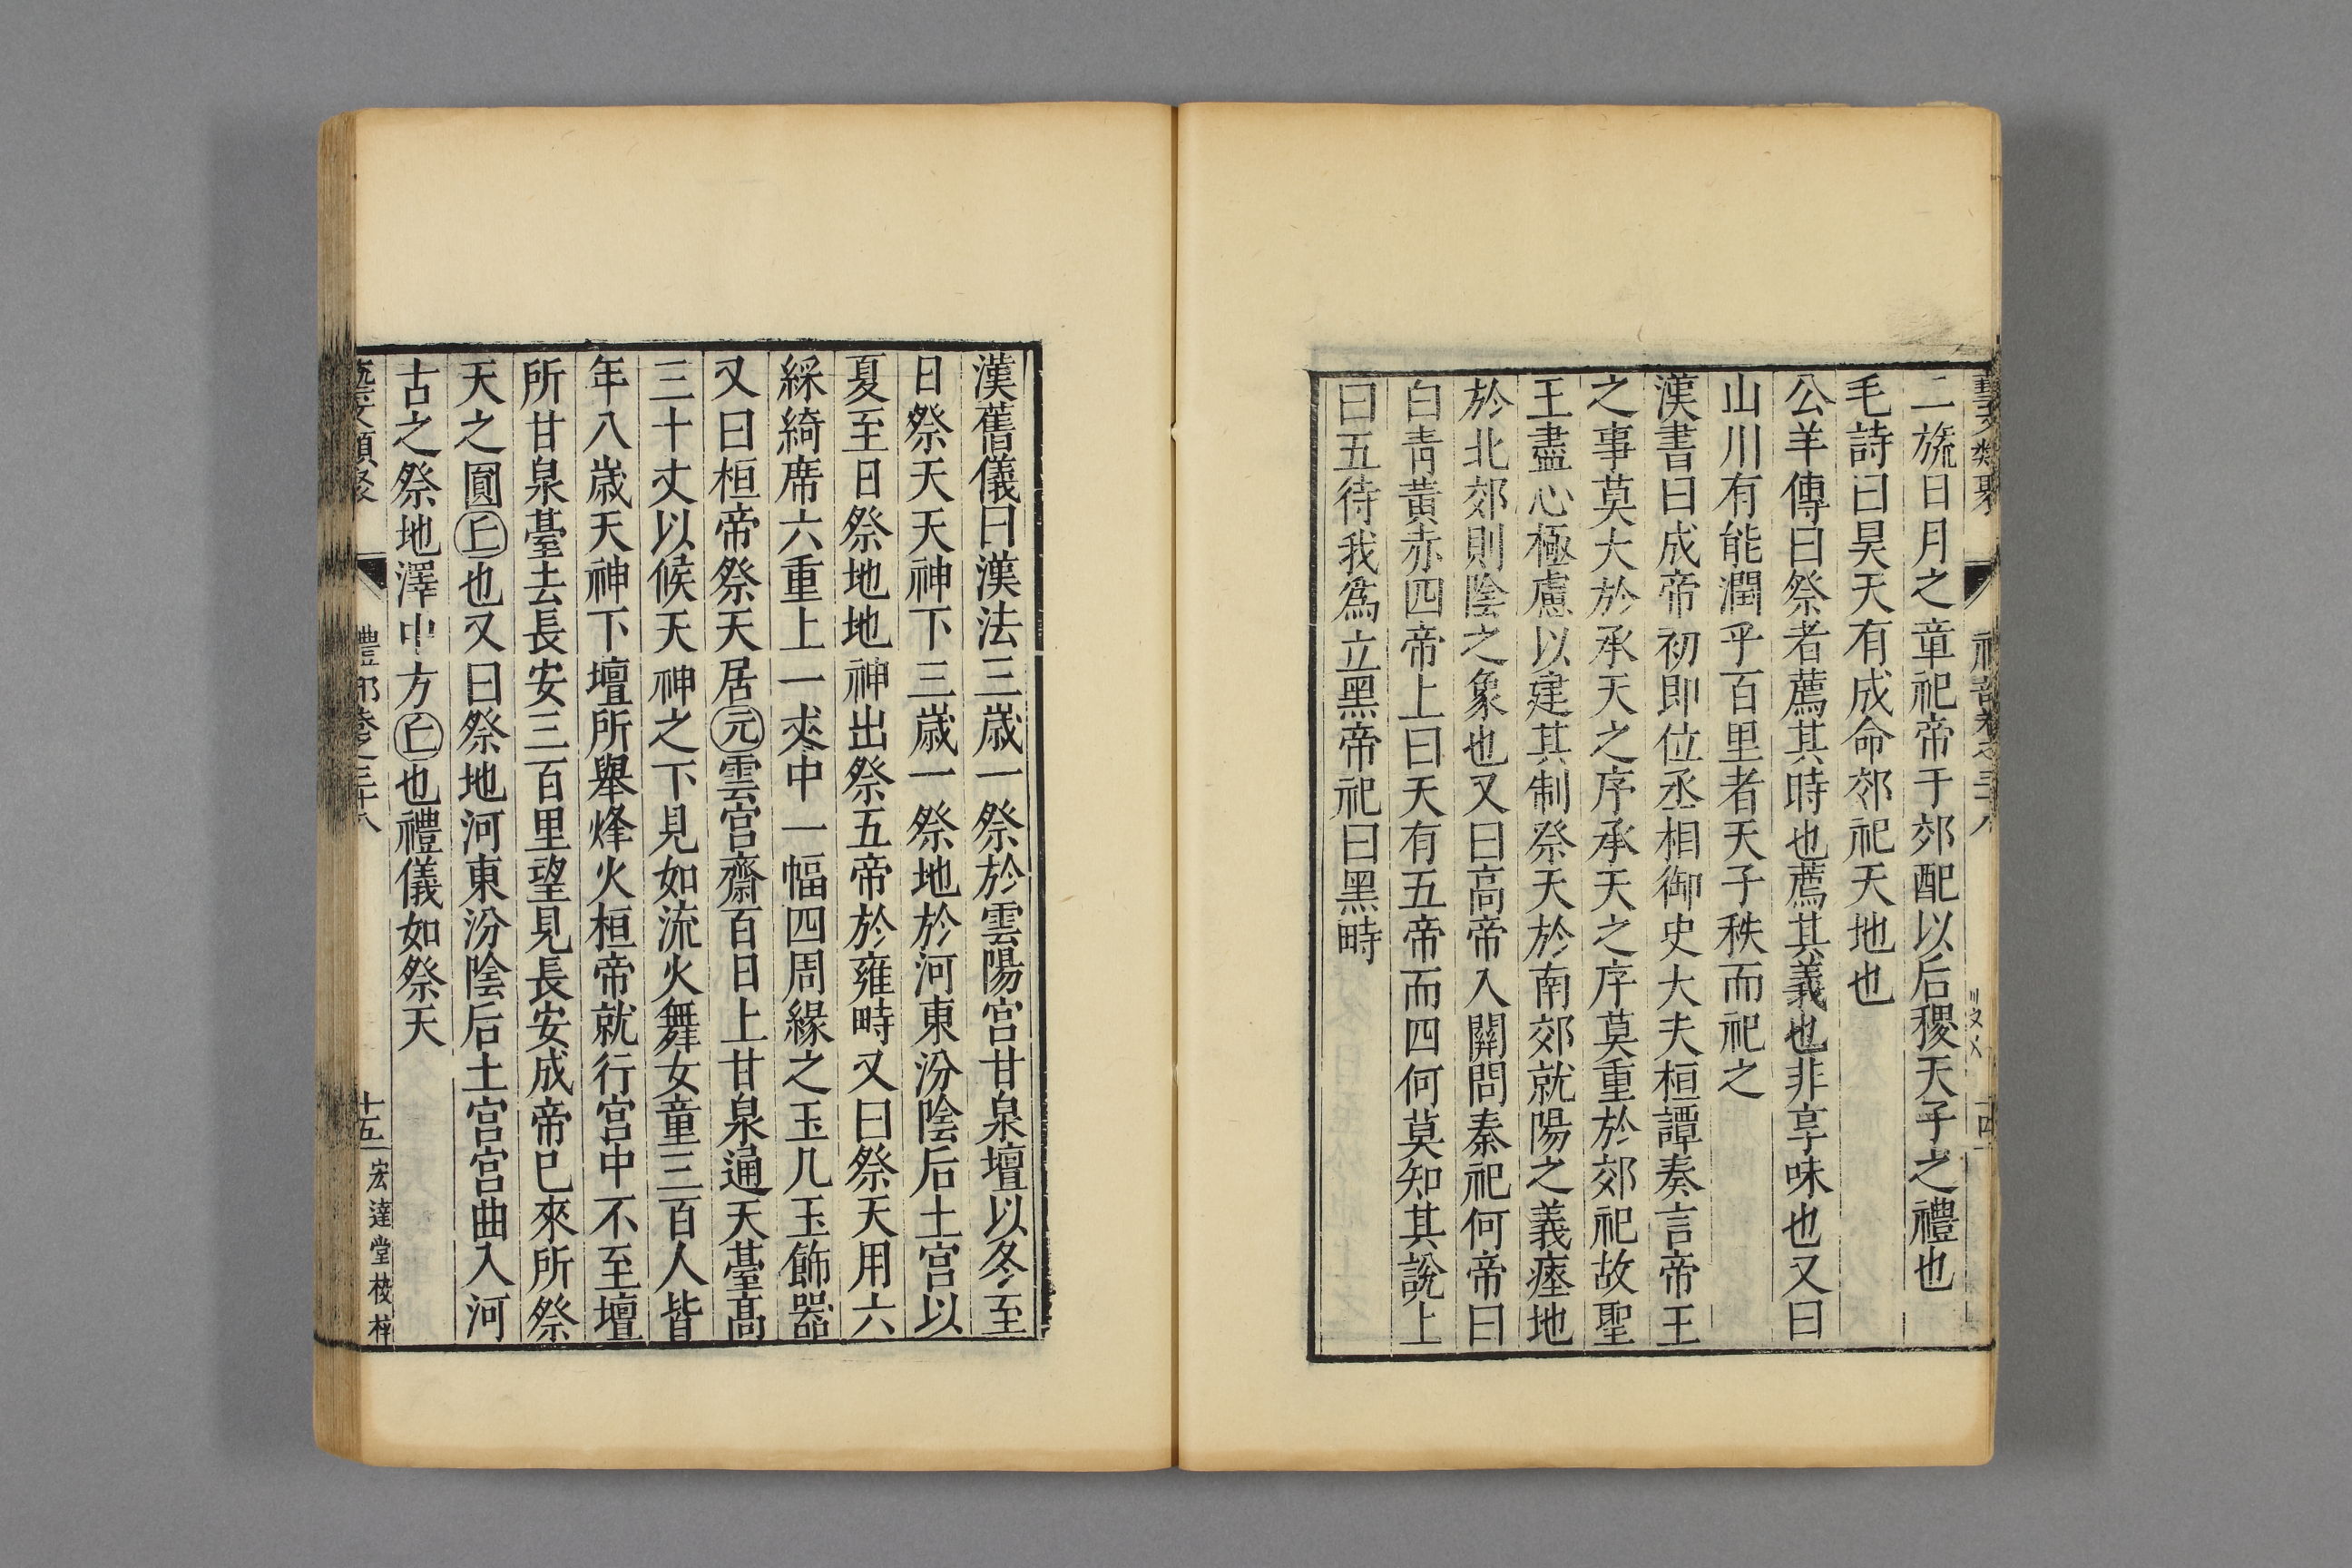 二旒日月之章祀帝于郊配以后稷天子之禮也
毛詩曰昊天有成命郊祀天地也
公羊傳曰祭者薦其時也薦其義也非享味也又曰
山川有能潤乎百里者天子秩而祀之
漢書曰成帝初即位丞相御史大夫桓譚奏言帝王
之事莫大於承天之序承天之序莫重於郊祀故聖
王盡心極慮以建其制祭天於南郊就陽之義瘞地
於北郊則陰之象也又曰高帝入關問秦祀何帝曰
白青黃赤四帝上曰天有五帝而四何莫知其說上
曰五待我爲立黑帝祀曰黑畤
漢舊儀曰漢法三歲一祭於雲陽宮甘泉壇以冬至
日祭天天神下三歲一祭地於河東汾陰后土宮以
夏至日祭地地神出祭五帝於雍畤又曰祭天用六
綵綺席六重上一衺中一幅四周緣之玉几玉飾器
又曰桓帝祭天居元雲宮齋百日上甘泉通天臺高
三十丈以候天神之下見如流火舞女童三百人皆
年八歲天神下壇所舉烽火桓帝就行宮中不至壇
所甘泉臺去長安三百里望見長安成帝巳來所祭
天之圓丘也又曰祭地河東汾陰后土宮宮曲入河
古之祭地澤中方丘也禮儀如祭天
藝文類聚 禮部卷之三十八 十五 宏達堂校梓